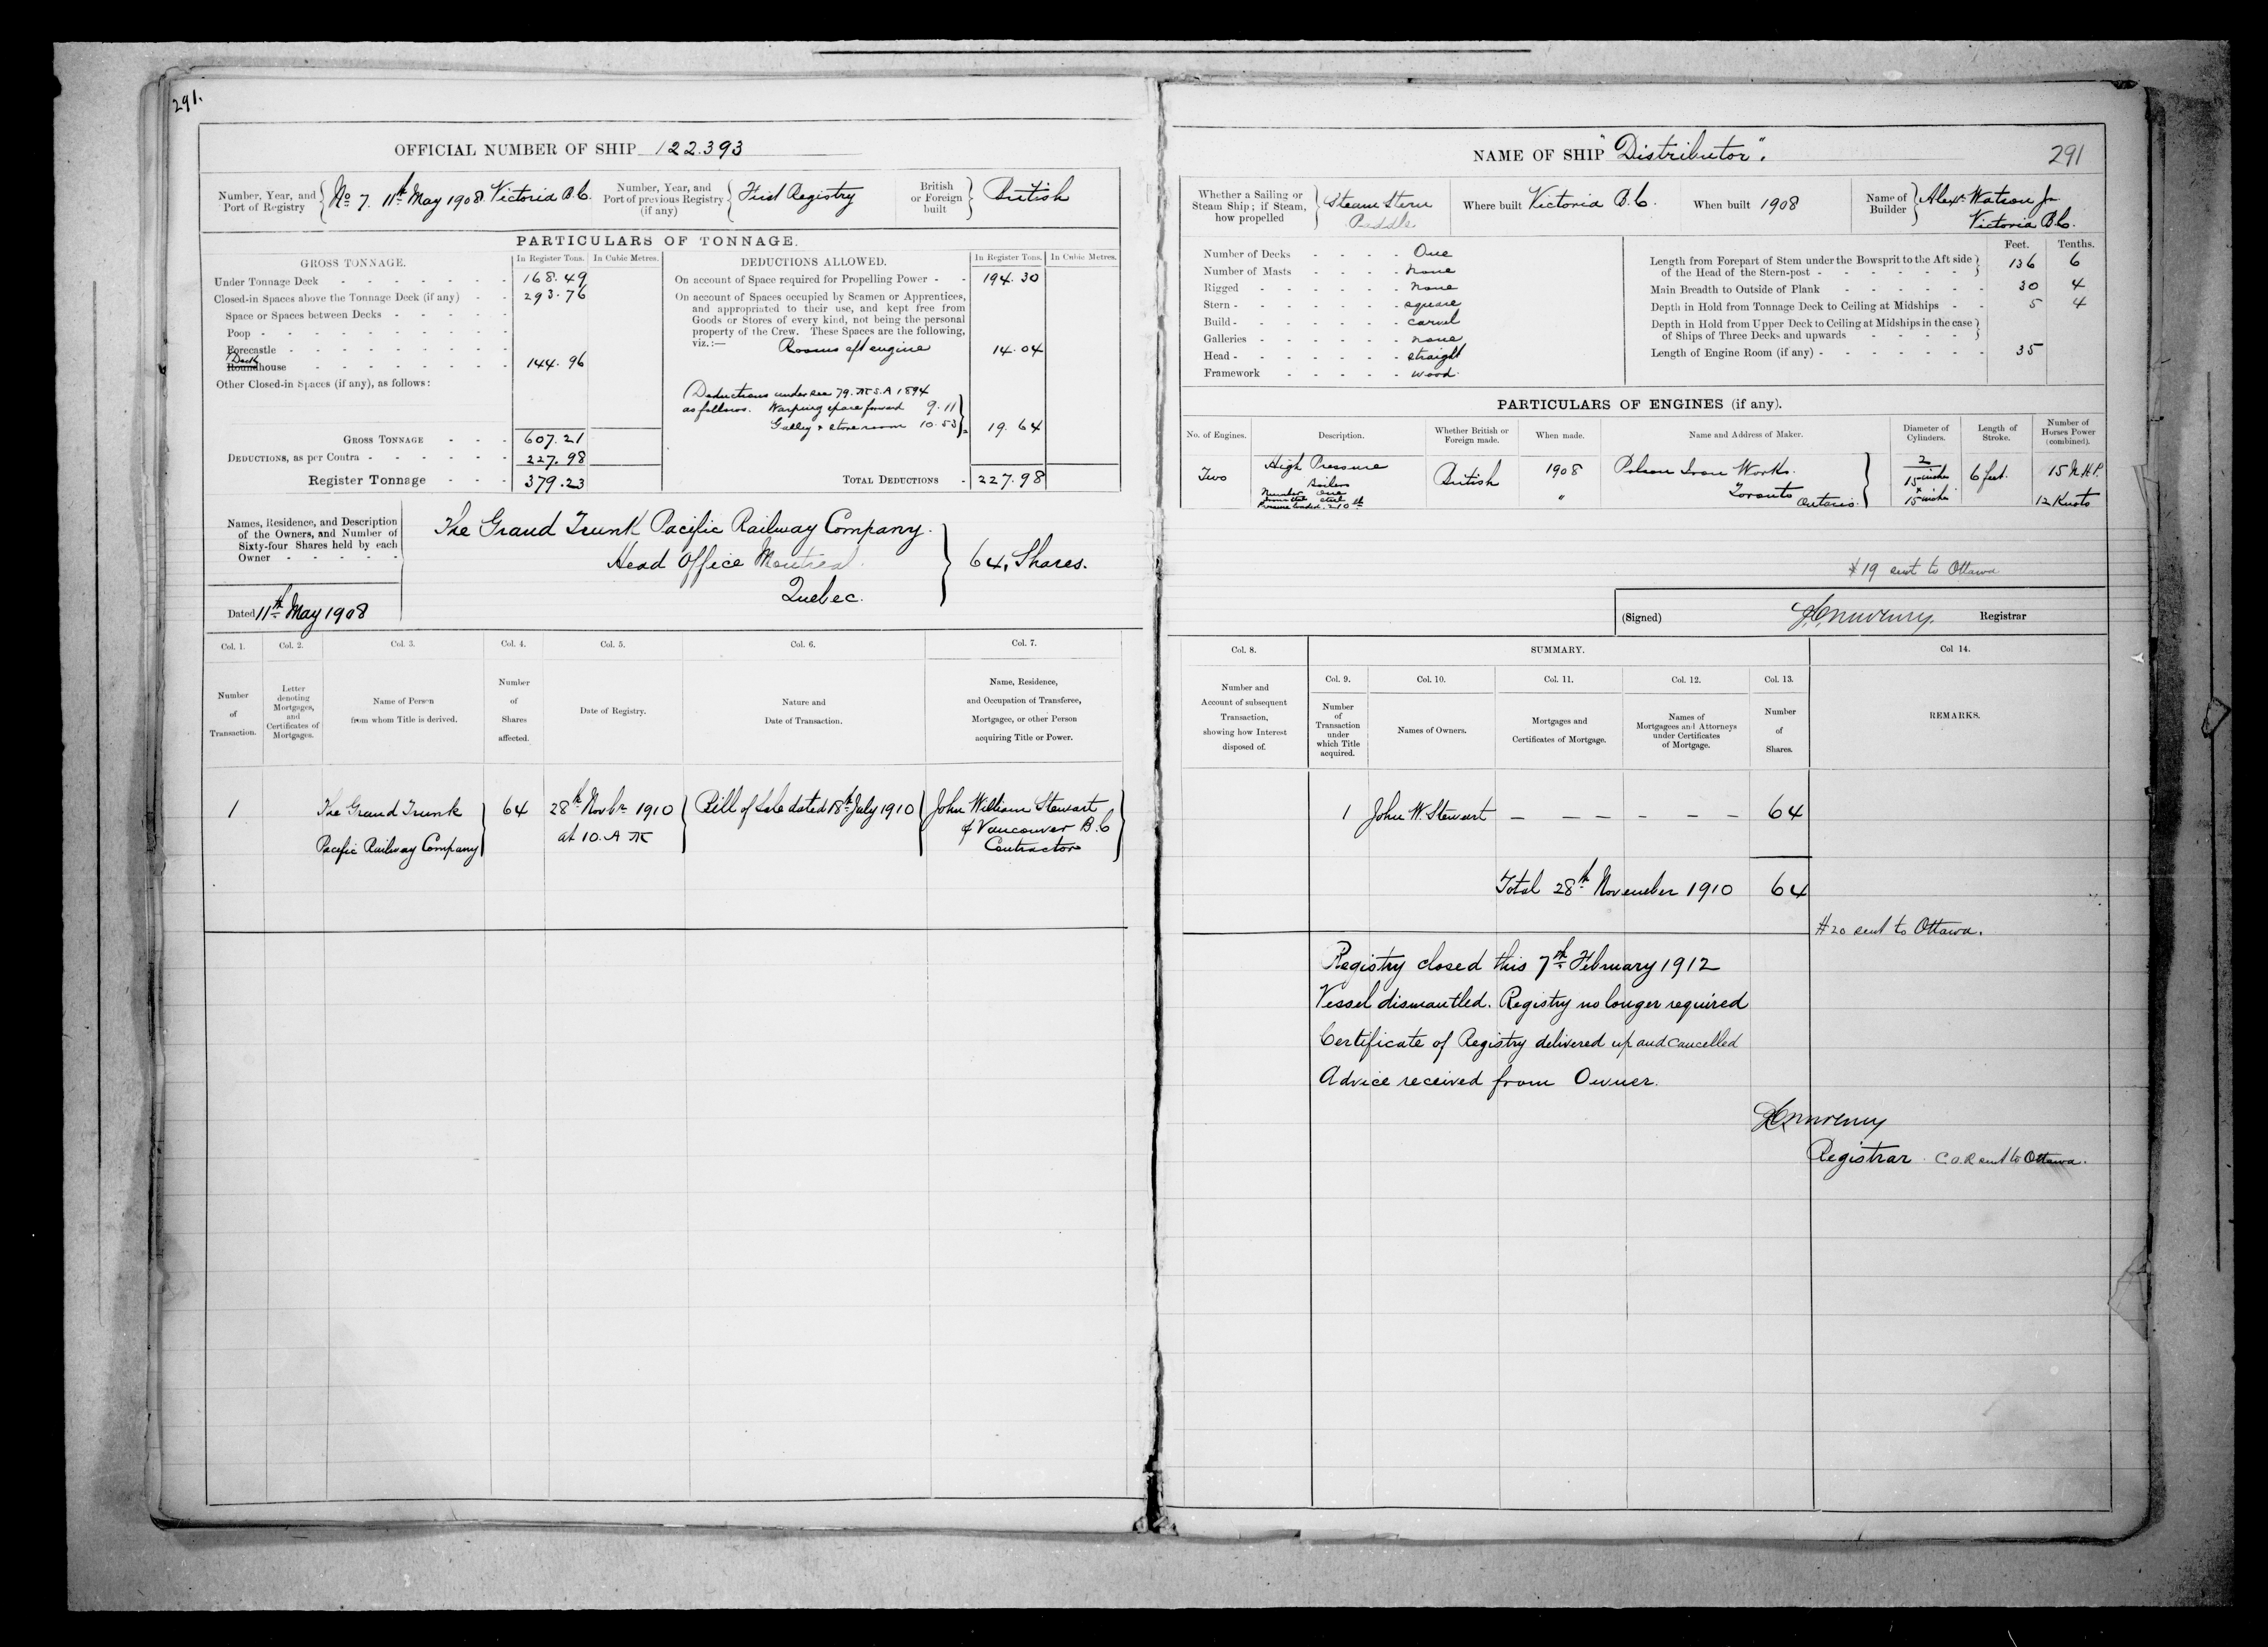 291.
OFFICIAL NUMBER OF SHIP 122.393
Number, Year, and Port of Registry No 7. 11th May 1908 Victoria B.C.
Number, Year, and Port of previous Registry (if any) First Registry
British or Foreign built British
PARTICULARS OF TONNAGE.
GROSS TONNAGE. In Register Tons. In Cubic Metres.
Under Tonnage Deck - - - - - - - 168.49
Closed-in Spaces above the Tonnage Deck (if any) - - 293.76
Space or Spaces between Decks - - - - -
Poop - - - - - - - - - -
Forecastle - - - - - - - - -
Deck
Roundhouse - - - - - - - - 144.96
Other Closed-in Spaces (if any), as follows:
GROSS TONNAGE - - - 607.21
DEDUCTIONS, as per Contra - - - - - - 227.98
Register Tonnage - - - 379.23
DEDUCTIONS ALLOWED. In Register Tons. In Cubic Metres.
On account of Space required for Propelling Power - - 194.30
On account of Spaces occupied by Seamen or Apprentices,
and appropriated to their use, and kept free from
Goods or Stores of every kind, not being the personal
property of the Crew. These Spaces are the following,
viz.:— Rooms aft engine 14.04
(Deductions under sec 79. M.S.A 1894
as follows. Warping space forward 9.11
Galley & store room 10.53 19.64
TOTAL DEDUCTIONS - 227.98
Names, Residence, and Description
of the Owners, and Number of
Sixty-four Shares held by each
Owner - - - - -
The Grand Trunk Pacific Railway Company.
Head Office Montreal
Quebec.
64, Shares.
Dated 11th May 1908
Col. 1. Col. 2. Col. 3. Col. 4. Col. 5. Col. 6. Col. 7.
Number of Transaction.
Letter denoting Mortgages, and Certificates of Mortgages.
Name of Person from whom Title is derived.
Number of Shares affected.
Date of Registry.
Nature and Date of Transaction.
Name, Residence, and Occupation of Transferee, Mortgagee, or other Person acquiring Title or Power.
1 The Grand Trunk 64 28th Novbr 1910 Bill of Sale dated 18th July 1910 John William Stewart
Pacific Railway Company at 10. A M of Vancouver B.C
Contractor
NAME OF SHIP "Distributor". 291
Whether a Sailing or Steam Ship; if Steam, how propelled Steam Stern Paddle
Where built Victoria B.C.
When built 1908
Name of Builder Alexr Watson Jr
Victoria B.C.
Number of Decks - - - - One
Number of Masts - - - - none
Rigged - - - - - - none
Stern - - - - - - - square
Build - - - - - - - carvel
Galleries - - - - - - none
Head - - - - - - - straight
Framework - - - - - wood
Feet. Tenths.
Length from Forepart of Stem under the Bowsprit to the Aft side
of the Head of the Stern-post - - - - - - - 136 6
Main Breadth to Outside of Plank - - - - - - 30 4
Depth in Hold from Tonnage Deck to Ceiling at Midships - - 5 4
Depth in Hold from Upper Deck to Ceiling at Midships in the case
of Ships of Three Decks and upwards - - - -
Length of Engine Room (if any) - - - - - - - 35
PARTICULARS OF ENGINES (if any).
No. of Engines. Description. Whether British or Foreign made. When made. Name and Address of Maker. Diameter of Cylinders. Length of Stroke. Number of Horses Power (combined).
Two High Pressure British 1908 Polson Iron Works. 2 6 feet. 15 N.H.P.
Boilers 15 inches
Number One " Toronto Ontario. 15 inches 12 Knots
$19 sent to Ottawa
(Signed) Registrar
Col. 8. SUMMARY. Col 14.
Number and Account of subsequent Transaction, showing how Interest disposed of.
Col. 9. Col. 10. Col. 11. Col. 12. Col. 13.
Number of Transaction under which Title acquired.
Names of Owners.
Mortgages and Certificates of Mortgage.
Names of Mortgagees and Attorneys under Certificates of Mortgage.
Number of Shares.
REMARKS.
1 John W. Stewart — — — — — — 64
Total 28th November 1910 64
#20 sent to Ottawa.
Registry closed this 7th February 1912
Vessel dismantled. Registry no longer required
Certificate of Registry delivered up and cancelled
Advice received from Owner.
Registrar C.O.R sent to Ottawa.